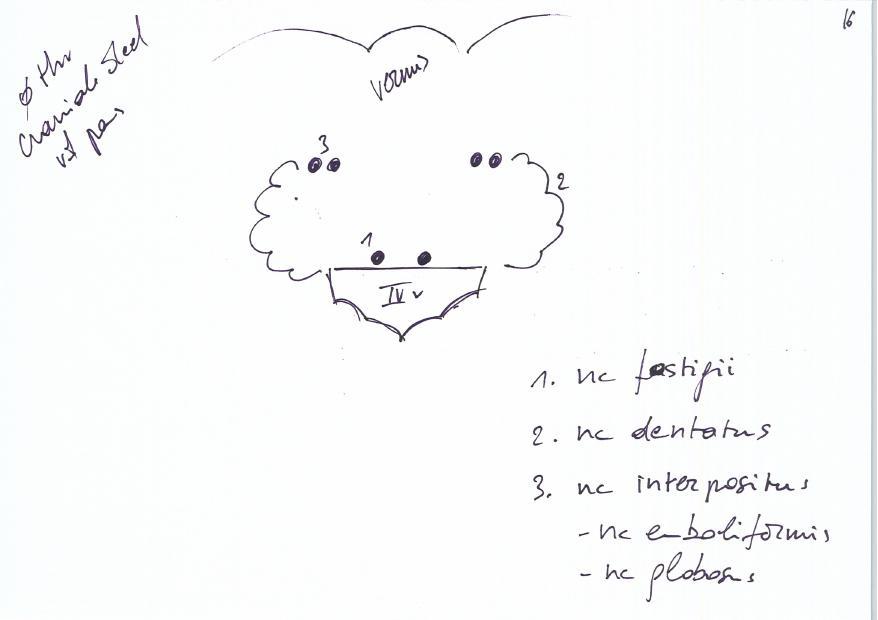 16
ϕ thr
craniale deel
v/d pons
vermis
3
2
1
IV v
1. nc fastigii
2. nc dentatus
3. nc interpositus
- nc emboliformis
- nc globosus